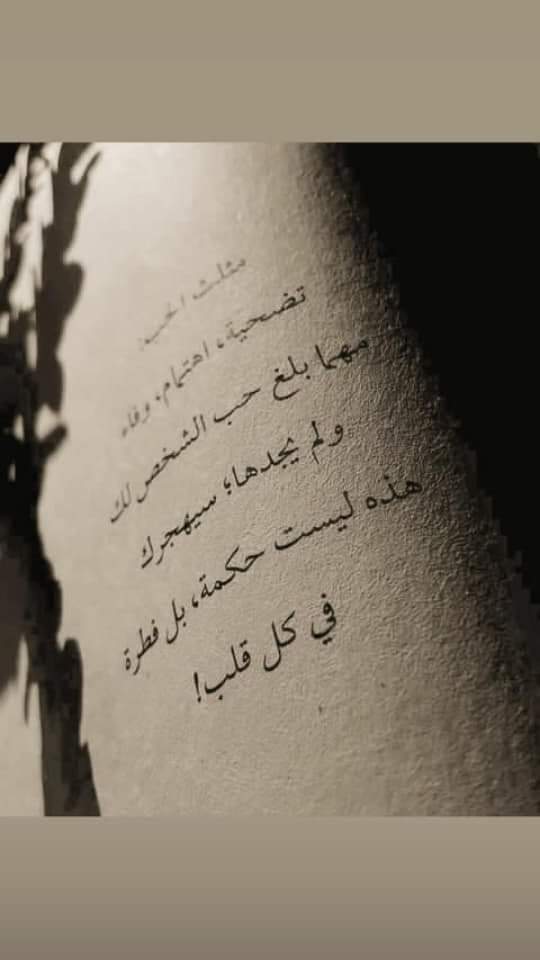 مثلث الحب:
تضحية، اهتمام، وفاء
مهما بلغ حب الشخص لك
ولم يجدها؛ سيهجرك
هذه ليست حكمة، بل فطرة
في كل قلب!